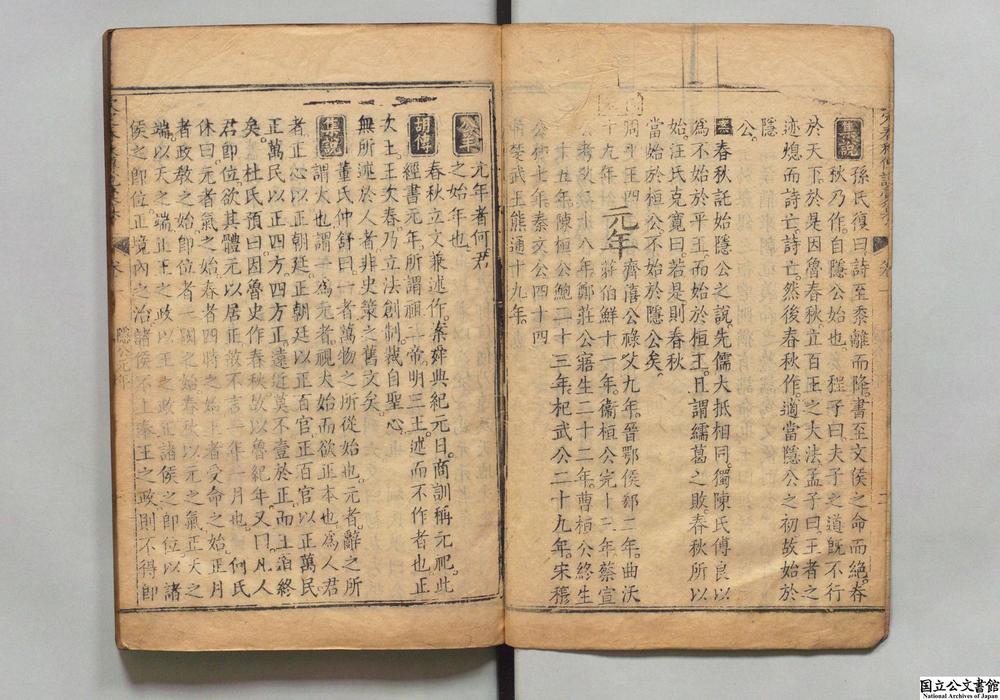 集說
孫氏復曰詩至黍離而降書至文侯之命而絕春
秋乃作自隱公始也程子曰夫子之道既不行
於天下於是因魯春秋立百王之大法孟子曰王者之
迹熄而詩亡詩亡然後春秋作適當隱公之初故始於
隱公
案
春秋託始隱公之說先儒大抵相同獨陳氏傅良以
為不始於平王而始於桓王且謂繻葛之敗春秋所以
始汪氏克寬曰若是則春秋
當始於桓公不始於隱公矣
元年
周平王四十九年齊僖公祿父九年晉鄂侯郤二年曲沃
莊伯鮮十一年衛桓公完十三年蔡宣
八年鄭莊公寤生二十二年曹桓公終生
十五年陳桓公鮑二十三年杞武公二十九年宋穆
公和七年秦文公四十四
年楚武王熊通十九年
公羊
元年者何君
之始年也
胡傳
春秋立文兼述作案舜典紀元日商訓稱元祀此
經書元年所謂祖二帝明三王述而不作者也正
次王王次春乃立法創制裁自聖心
無所述於人者非史策之舊文矣
集說
董氏仲舒曰一者萬物之所從始也元者辭之所
謂大也謂一為元者視大始而欲正本也為人君
者正心以正朝廷正朝廷以正百官正百官以正萬民
正萬民以正四方四方正遠近莫不壹於正而王道終
矣杜氏預曰因魯史作春秋故以魯紀年又曰凡人
君即位欲其體元以居正故不言一年一月也何氏
休曰元者氣之始春者四時之始王者受命之始正月
者政教之始即位者一國之始春秋以元之氣正天之
端以天之端正王之政以王之政正諸侯之即位以諸
侯之即位正境內之治諸侯不上奉王之政則不得即
隱公元年
国立公文書館
National Archives of Japan